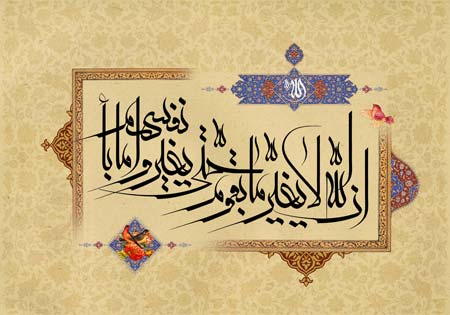 الله
ان الله لا یغیر ما بقوم حتی یغیروا ما بانفسهم